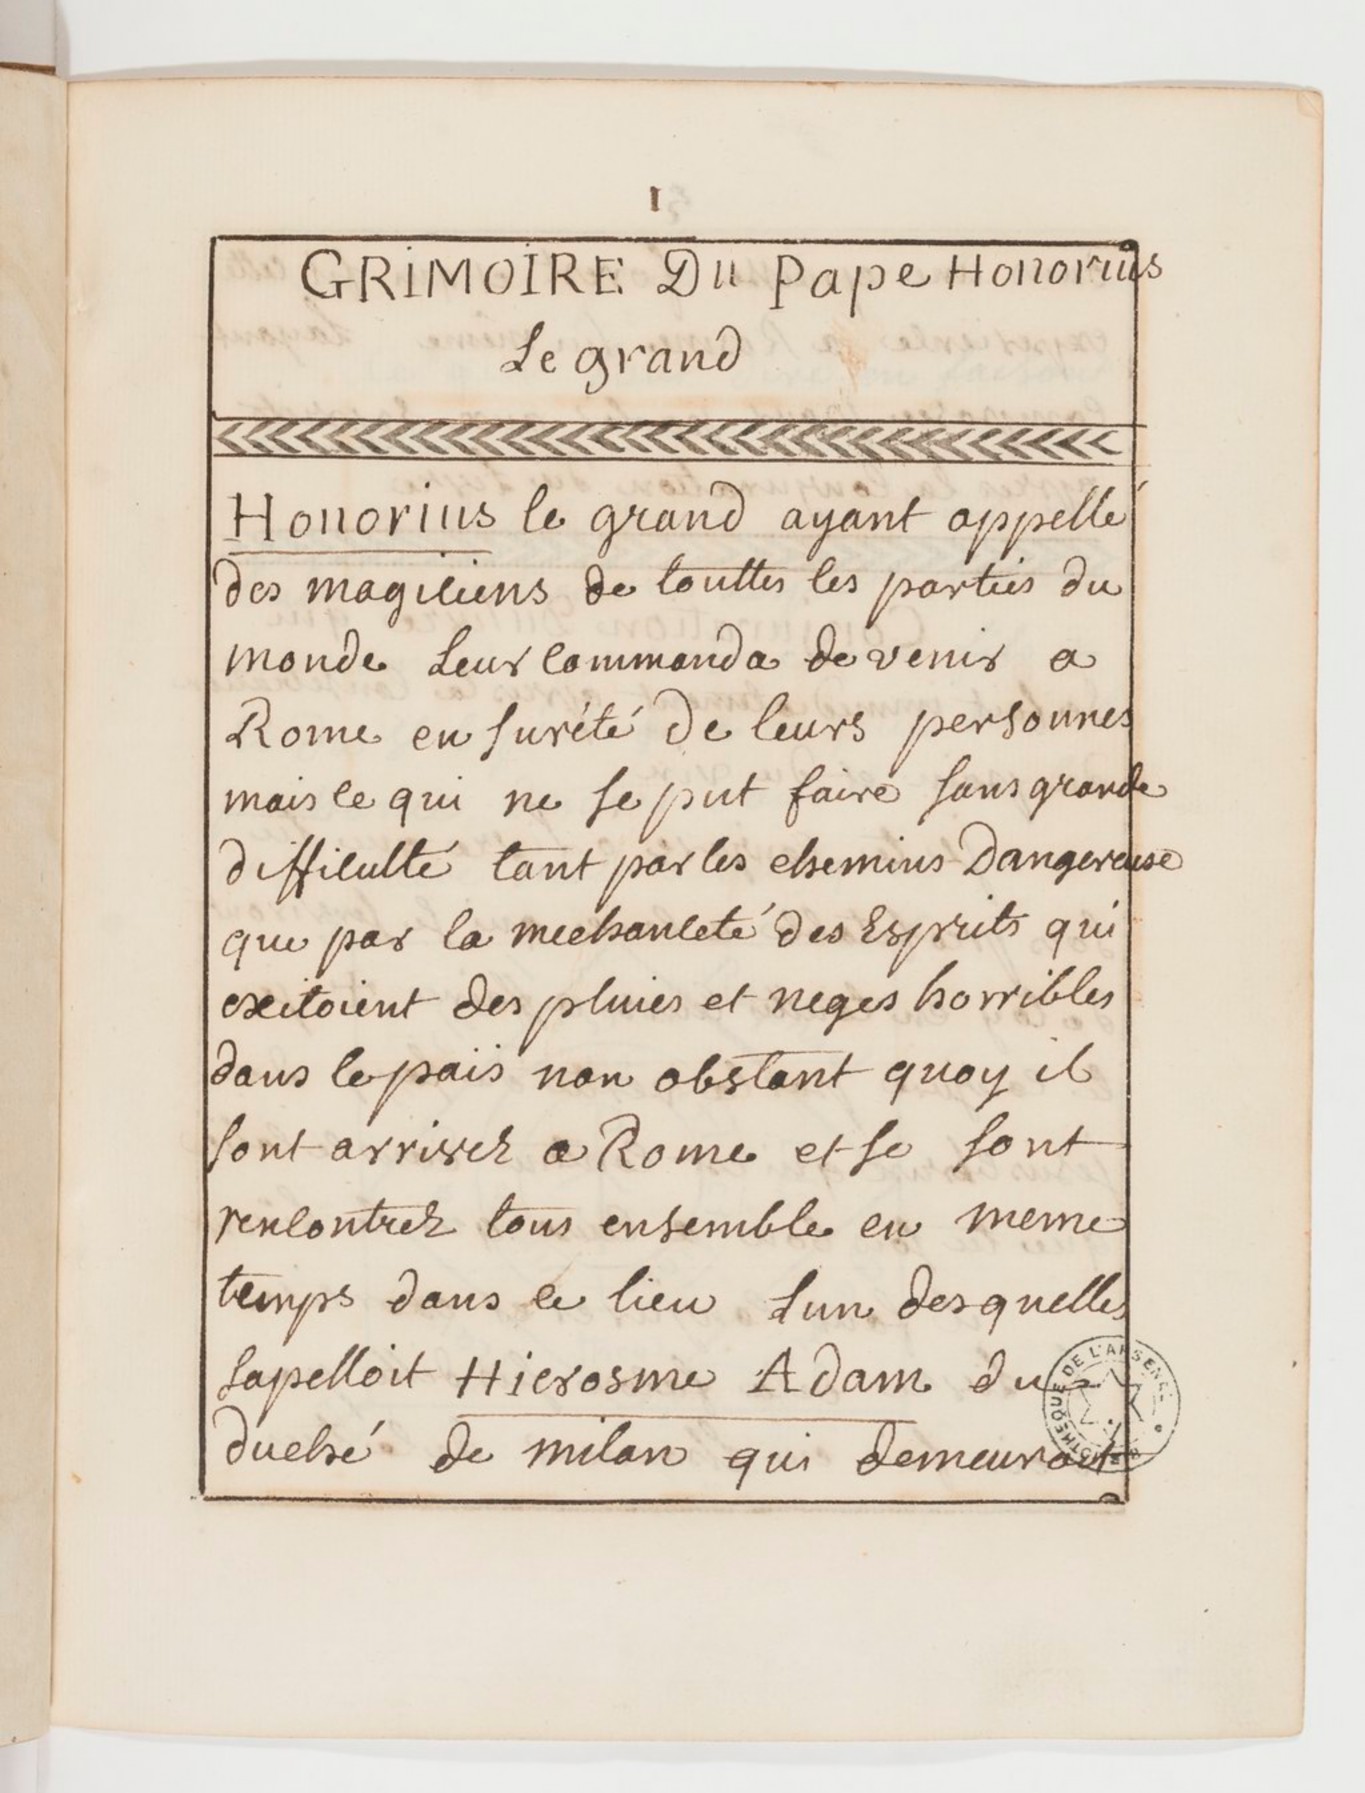 1
GRIMOIRE Du Pape Honorius
Le grand
Honorius le grand ayant appellé
des magiciens de touttes les parties du
monde Leur commanda de venir a
Rome en surété de leurs personnes
mais ce qui ne se put faire sans grande
difficulté tant par les chemins Dangereuse
que par la mechanceté des Esprits qui
exitoient des pluies et neges horribles
dans le païs non obstant quoy il
sont arrivez a Rome et se sont
rencontrez tous ensemble en meme
temps dans ce lieu Lun desquelles
sapelloit Hierosme Adam du
duché de milan qui demeuroit
BIBLIOTHEQUE DE L'ARSENAL